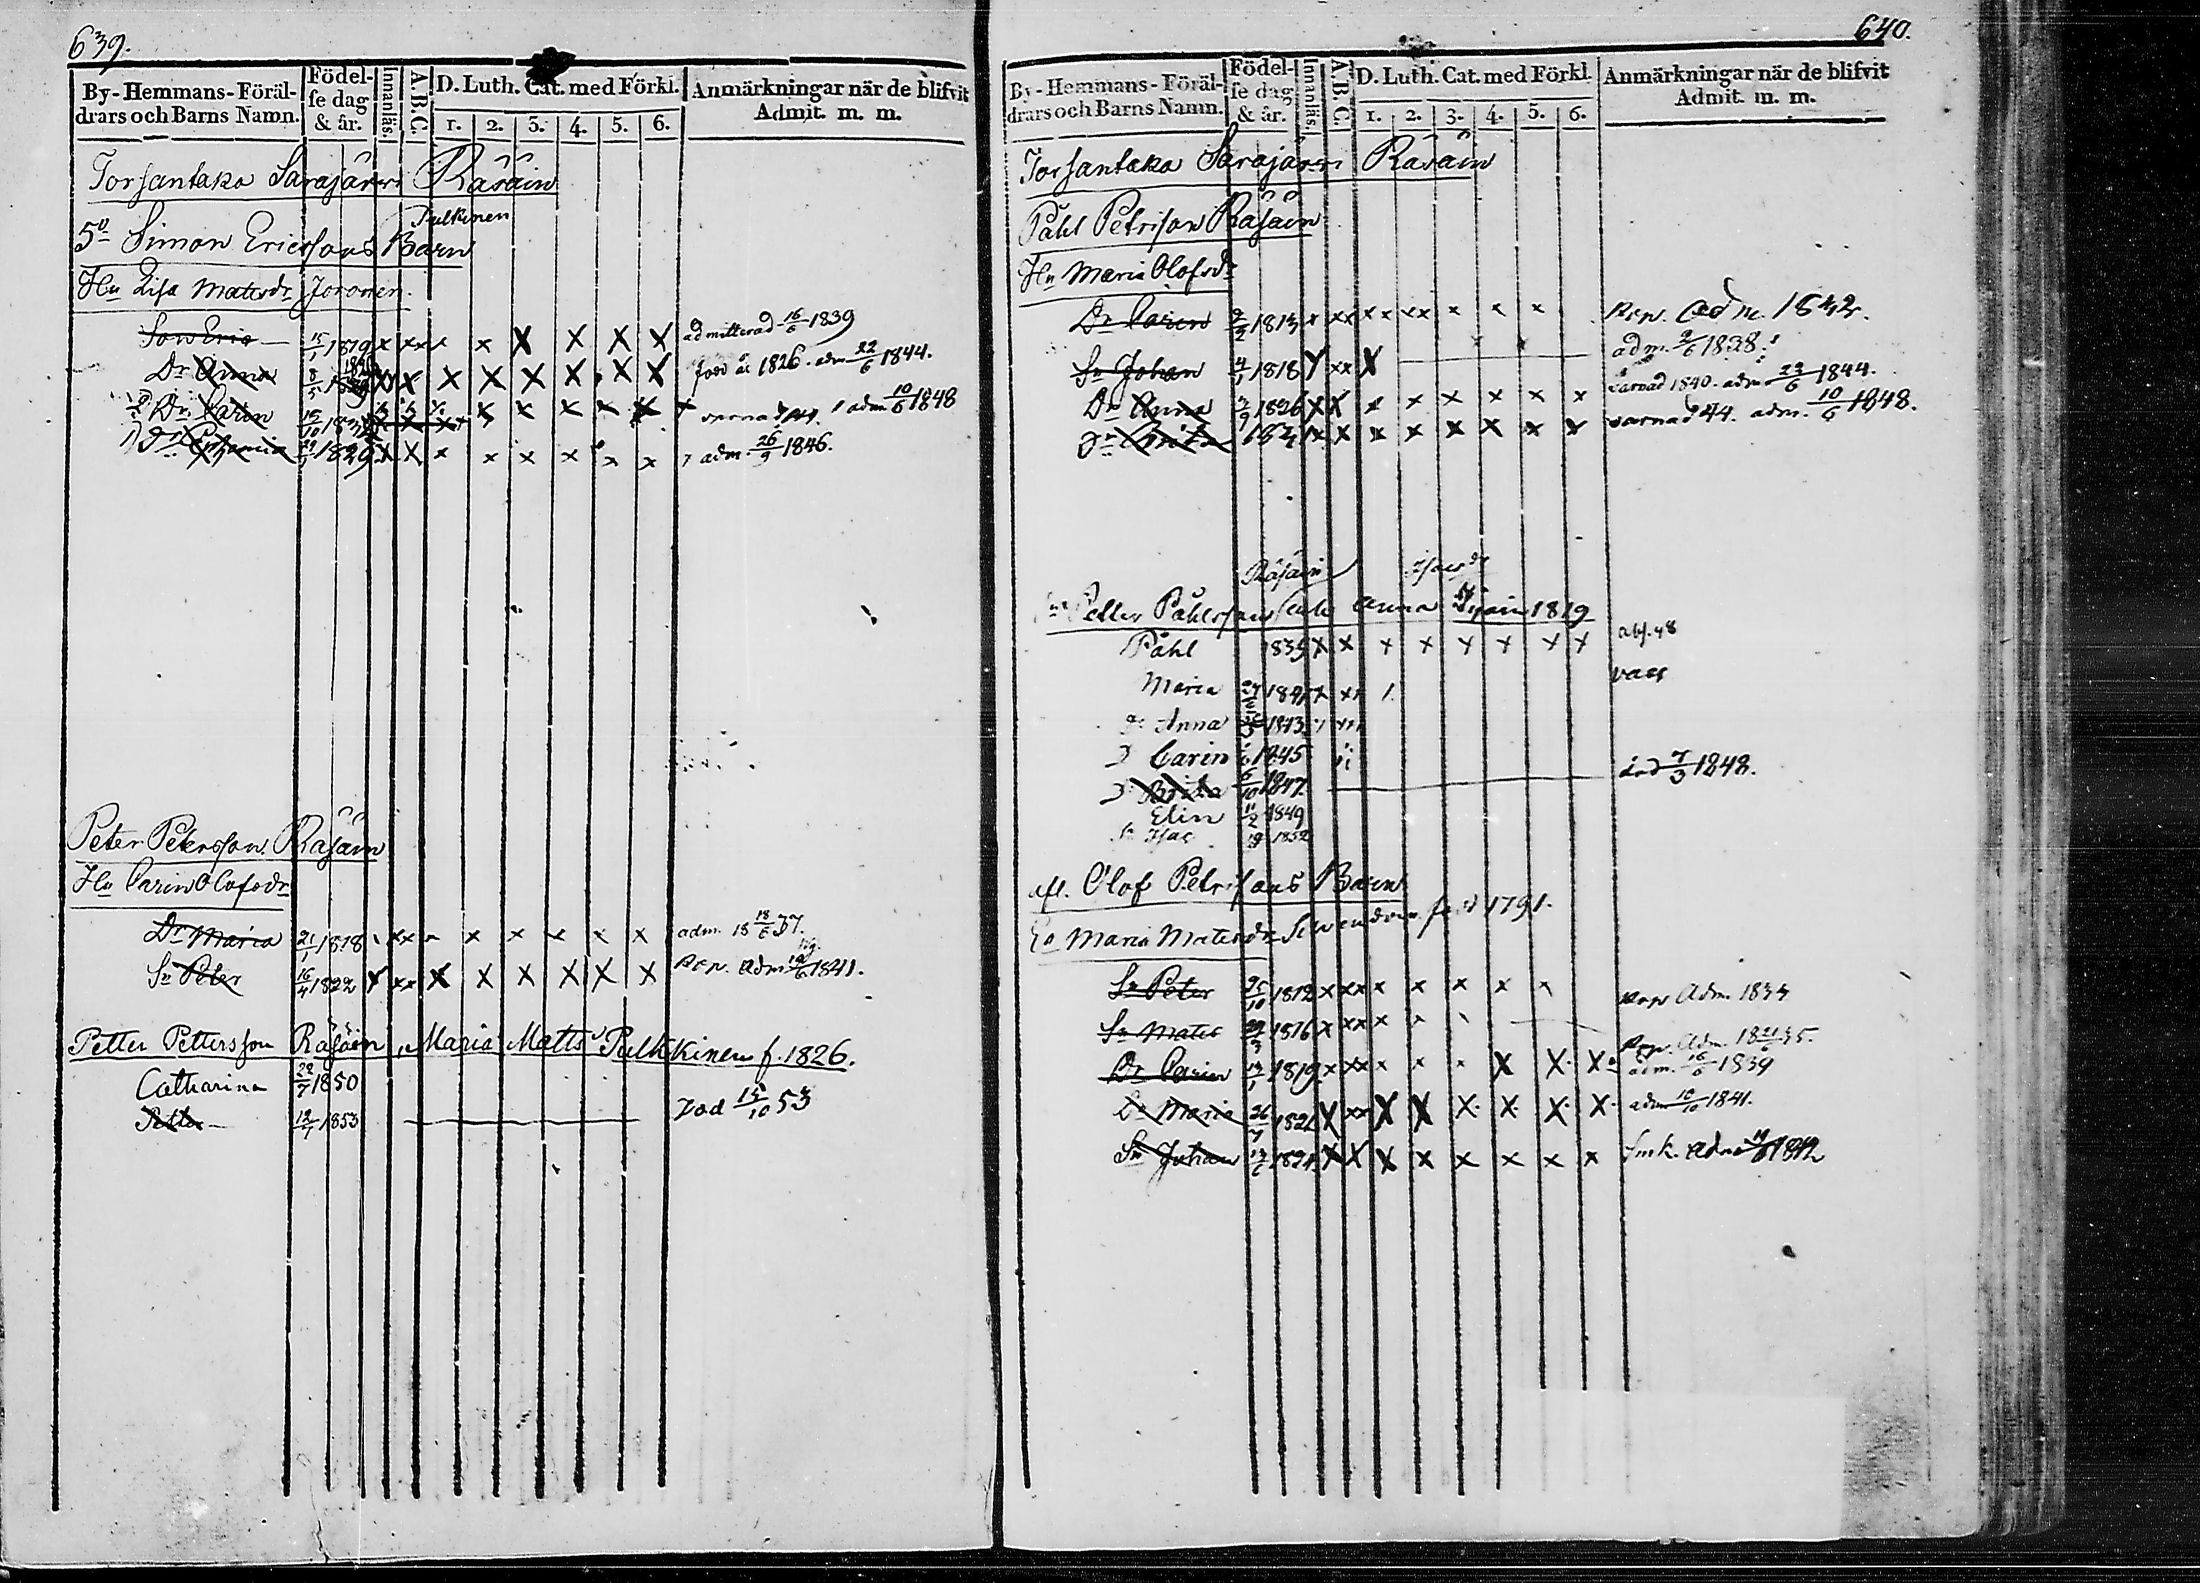 639.
By-Hemmans-Föräldrars och Barns Namn.
Födelse dag & år.
Innanläs.
A.B.C.
D. Luth. Cat. med Förkl.
1. 2. 3. 4. 5. 6.
Anmärkningar när de blifvit Admit. m. m.
Torsantaka Sarajärvi Räsäin
Pulkinen
5o Simon Ericssons Barn
Hu Lisa Matsdr Joronen.
Son Eric 15/1 1819 x xxx x x x x x admitterad 16/6 1839
Dr Anna 8/5 x x x x x x x x född år 1826. adm 22/6 1844.
Dr Carin 15/10 x x x x x x varnad adm 10/6 1848
1829 x x x x x x x x adm. 26/9 1846.
Peter Petersson Räsäin
Hu Carin Olofsdr
Dr Maria 21/1 1818 xx x x x x x adm. 18 18/6 37.
Sn Peter 16/4 1822 x xx x x x x x x Rep. adm 1841.
Petter Pettersson Räsäin, Maria Matts Pulkkinen f. 1826.
Catharina 22/7 1850
Petter 12/7 1853 Död 15/10 53
640.
By-Hemmans-Föräldrars och Barns Namn.
Födelse dag & år.
Innanläs.
A.B.C.
D. Luth. Cat. med Förkl.
1. 2. 3. 4. 5. 6.
Anmärkningar när de blifvit Admit. m. m.
Torsantaka Sarajärvi Räsäin
Påhl Petrisson Räsäin
Hu Maria Olofsdr
Dr Carin 2/2 1813 x xx xx xx x x x Rep. adm. 1832.
Sn Johan 4/1 1818 x xx x adm. 2/6 1838
Dr Anna 7/9 1826 x x x x x x x x varnad 1840. adm 22/6 1844.
Dr Brita x x x x x x x x varnad 44. adm. 10/6 1848.
Räsäin Isacsdr
Petter Påhlsson Anna 1819
Påhl 1839 x x x x x x x x abs. 48
Maria xx 1. vacc
Dr Anna 1843
D Carin 1845
D Brita 6/10 1847 död 7/3 1848.
Elin 11/2 1849
Sn Isac 1852
afl. Olof Petrissons Barn
Ea Maria Matsdr född 1791.
Sn Peter 25/10 1812 x xx x x x x x Rep Adm.
Sn Mats 1816 x xxx x Rep. Adm. 18 21/6 35.
Dr Carin 1819 x xxx x x x x x x adm. 16/6 1839
Dr Maria 26/7 1821 x xx x x x x x x adm 10/10 1841.
Sn Johan 1824 x x x x x x x x adm 1842